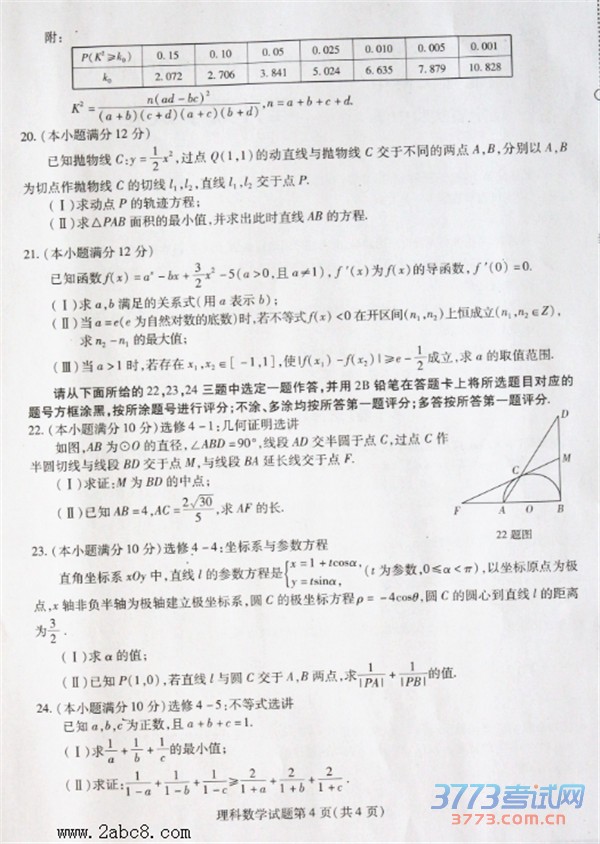 附:
P(K²≥k₀) 0.15 0.10 0.05 0.025 0.010 0.005 0.001
k₀ 2.072 2.706 3.841 5.024 6.635 7.879 10.828
K²=n(ad-bc)²/((a+b)(c+d)(a+c)(b+d)),n=a+b+c+d.
20.(本小题满分12分)
已知抛物线C:y=1/2x²,过点Q(1,1)的动直线与抛物线C交于不同的两点A,B,分别以A,B
为切点作抛物线C的切线l₁,l₂,直线l₁,l₂交于点P.
(Ⅰ)求动点P的轨迹方程;
(Ⅱ)求△PAB面积的最小值,并求出此时直线AB的方程.
21.(本小题满分12分)
已知函数f(x)=aˣ-bx+3/2x²-5(a>0,且a≠1),f′(x)为f(x)的导函数,f′(0)=0.
(Ⅰ)求a,b满足的关系式(用a表示b);
(Ⅱ)当a=e(e为自然对数的底数)时,若不等式f(x)<0在开区间(n₁,n₂)上恒成立(n₁,n₂∈Z),
求n₂-n₁的最大值;
(Ⅲ)当a>1时,若存在x₁,x₂∈[-1,1],使|f(x₁)-f(x₂)|≥e-1/2成立,求a的取值范围.
请从下面所给的22,23,24三题中选定一题作答,并用2B铅笔在答题卡上将所选题目对应的
题号方框涂黑,按所涂题号进行评分;不涂、多涂均按所答第一题评分;多答按所答第一题评分.
22.(本小题满分10分)选修4-1:几何证明选讲
如图,AB为⊙O的直径,∠ABD=90°,线段AD交半圆于点C,过点C作
半圆切线与线段BD交于点M,与线段BA延长线交于点F.
(Ⅰ)求证:M为BD的中点;
(Ⅱ)已知AB=4,AC=2√30/5,求AF的长.
D
M
C
F A O B
22题图
23.(本小题满分10分)选修4-4:坐标系与参数方程
直角坐标系xOy中,直线l的参数方程是{x=1+tcosα, y=tsinα, (t为参数,0≤α<π),以坐标原点为极
点,x轴非负半轴为极轴建立极坐标系,圆C的极坐标方程ρ=-4cosθ,圆C的圆心到直线l的距离
为3/2.
(Ⅰ)求α的值;
(Ⅱ)已知P(1,0),若直线l与圆C交于A,B两点,求1/|PA|+1/|PB|的值.
24.(本小题满分10分)选修4-5:不等式选讲
已知a,b,c为正数,且a+b+c=1.
(Ⅰ)求1/a+1/b+1/c的最小值;
(Ⅱ)求证:1/(1-a)+1/(1-b)+1/(1-c)≥2/(1+a)+2/(1+b)+2/(1+c).
理科数学试题第4页(共4页)
3773考试网
3773.com.cn
www.2abc8.com